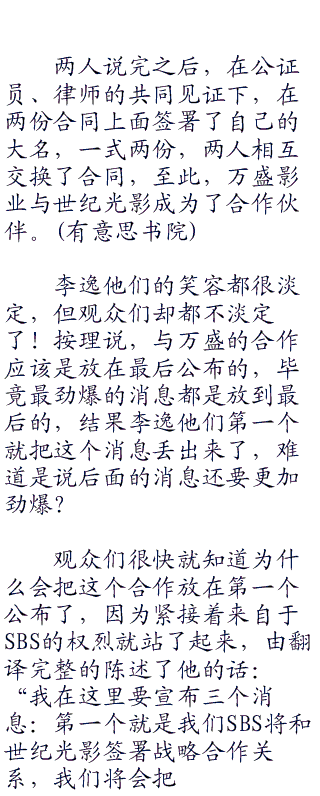 两人说完之后，在公证
员、律师的共同见证下，在
两份合同上面签署了自己的
大名，一式两份，两人相互
交换了合同，至此，万盛影
业与世纪光影成为了合作伙
伴。(有意思书院)
李逸他们的笑容都很淡
定，但观众们却都不淡定
了！按理说，与万盛的合作
应该是放在最后公布的，毕
竟最劲爆的消息都是放到最
后的，结果李逸他们第一个
就把这个消息丢出来了，难
道是说后面的消息还要更加
劲爆？
观众们很快就知道为什
么会把这个合作放在第一个
公布了，因为紧接着来自于
SBS的权烈就站了起来，由翻
译完整的陈述了他的话：
“我在这里要宣布三个消
息：第一个就是我们SBS将和
世纪光影签署战略合作关
系，我们将会把